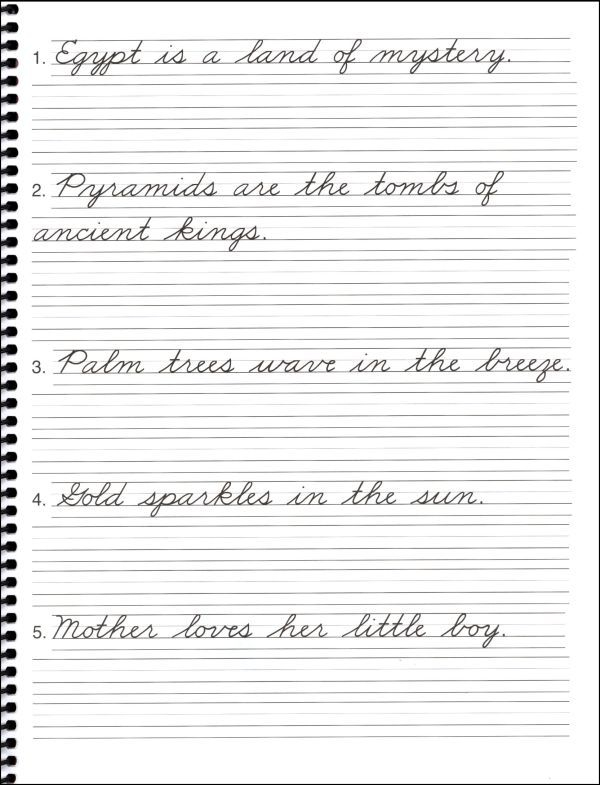 1. Egypt is a land of mystery.
2. Pyramids are the tombs of
ancient kings.
3. Palm trees wave in the breeze.
4. Gold sparkles in the sun.
5. Mother loves her little boy.